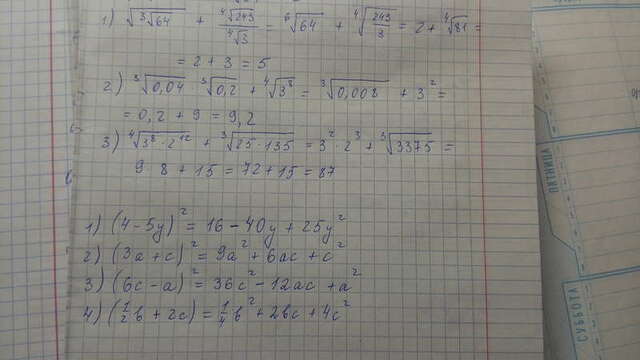 1) √(∛64) + ⁴√243 / ⁴√3 = ⁶√64 + ⁴√(243/3) = 2 + ⁴√81 =
= 2 + 3 = 5
2) ∛0,04 · ∛0,2 + ⁴√(3⁸) = ∛0,008 + 3² =
= 0,2 + 9 = 9,2
3) ⁴√(3⁸ · 2¹²) + ∛(25 · 135) = 3² · 2³ + ∛3375 =
9 · 8 + 15 = 72 + 15 = 87
1) (4 - 5y)² = 16 - 40y + 25y²
2) (3a + c)² = 9a² + 6ac + c²
3) (6c - a)² = 36c² - 12ac + a²
4) (½b + 2c) = ¼b² + 2bc + 4c²
ПЯТНИЦА
СУББОТА